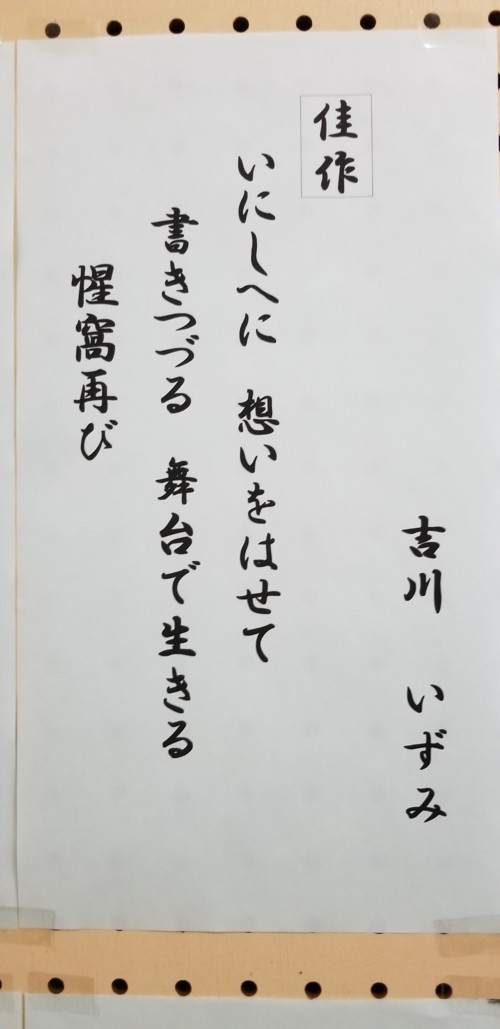 吉川 いずみ
佳作
いにしへに 想いをはせて
書きつづる 舞台で生きる
惺窩再び